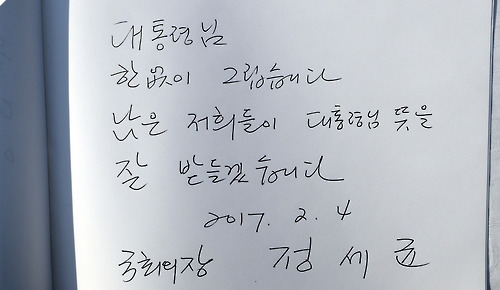 대통령님
한없이 그립습니다
남은 저희들이 대통령님 뜻을
잘 받들겠습니다
2017. 2. 4
국회의장 정세균